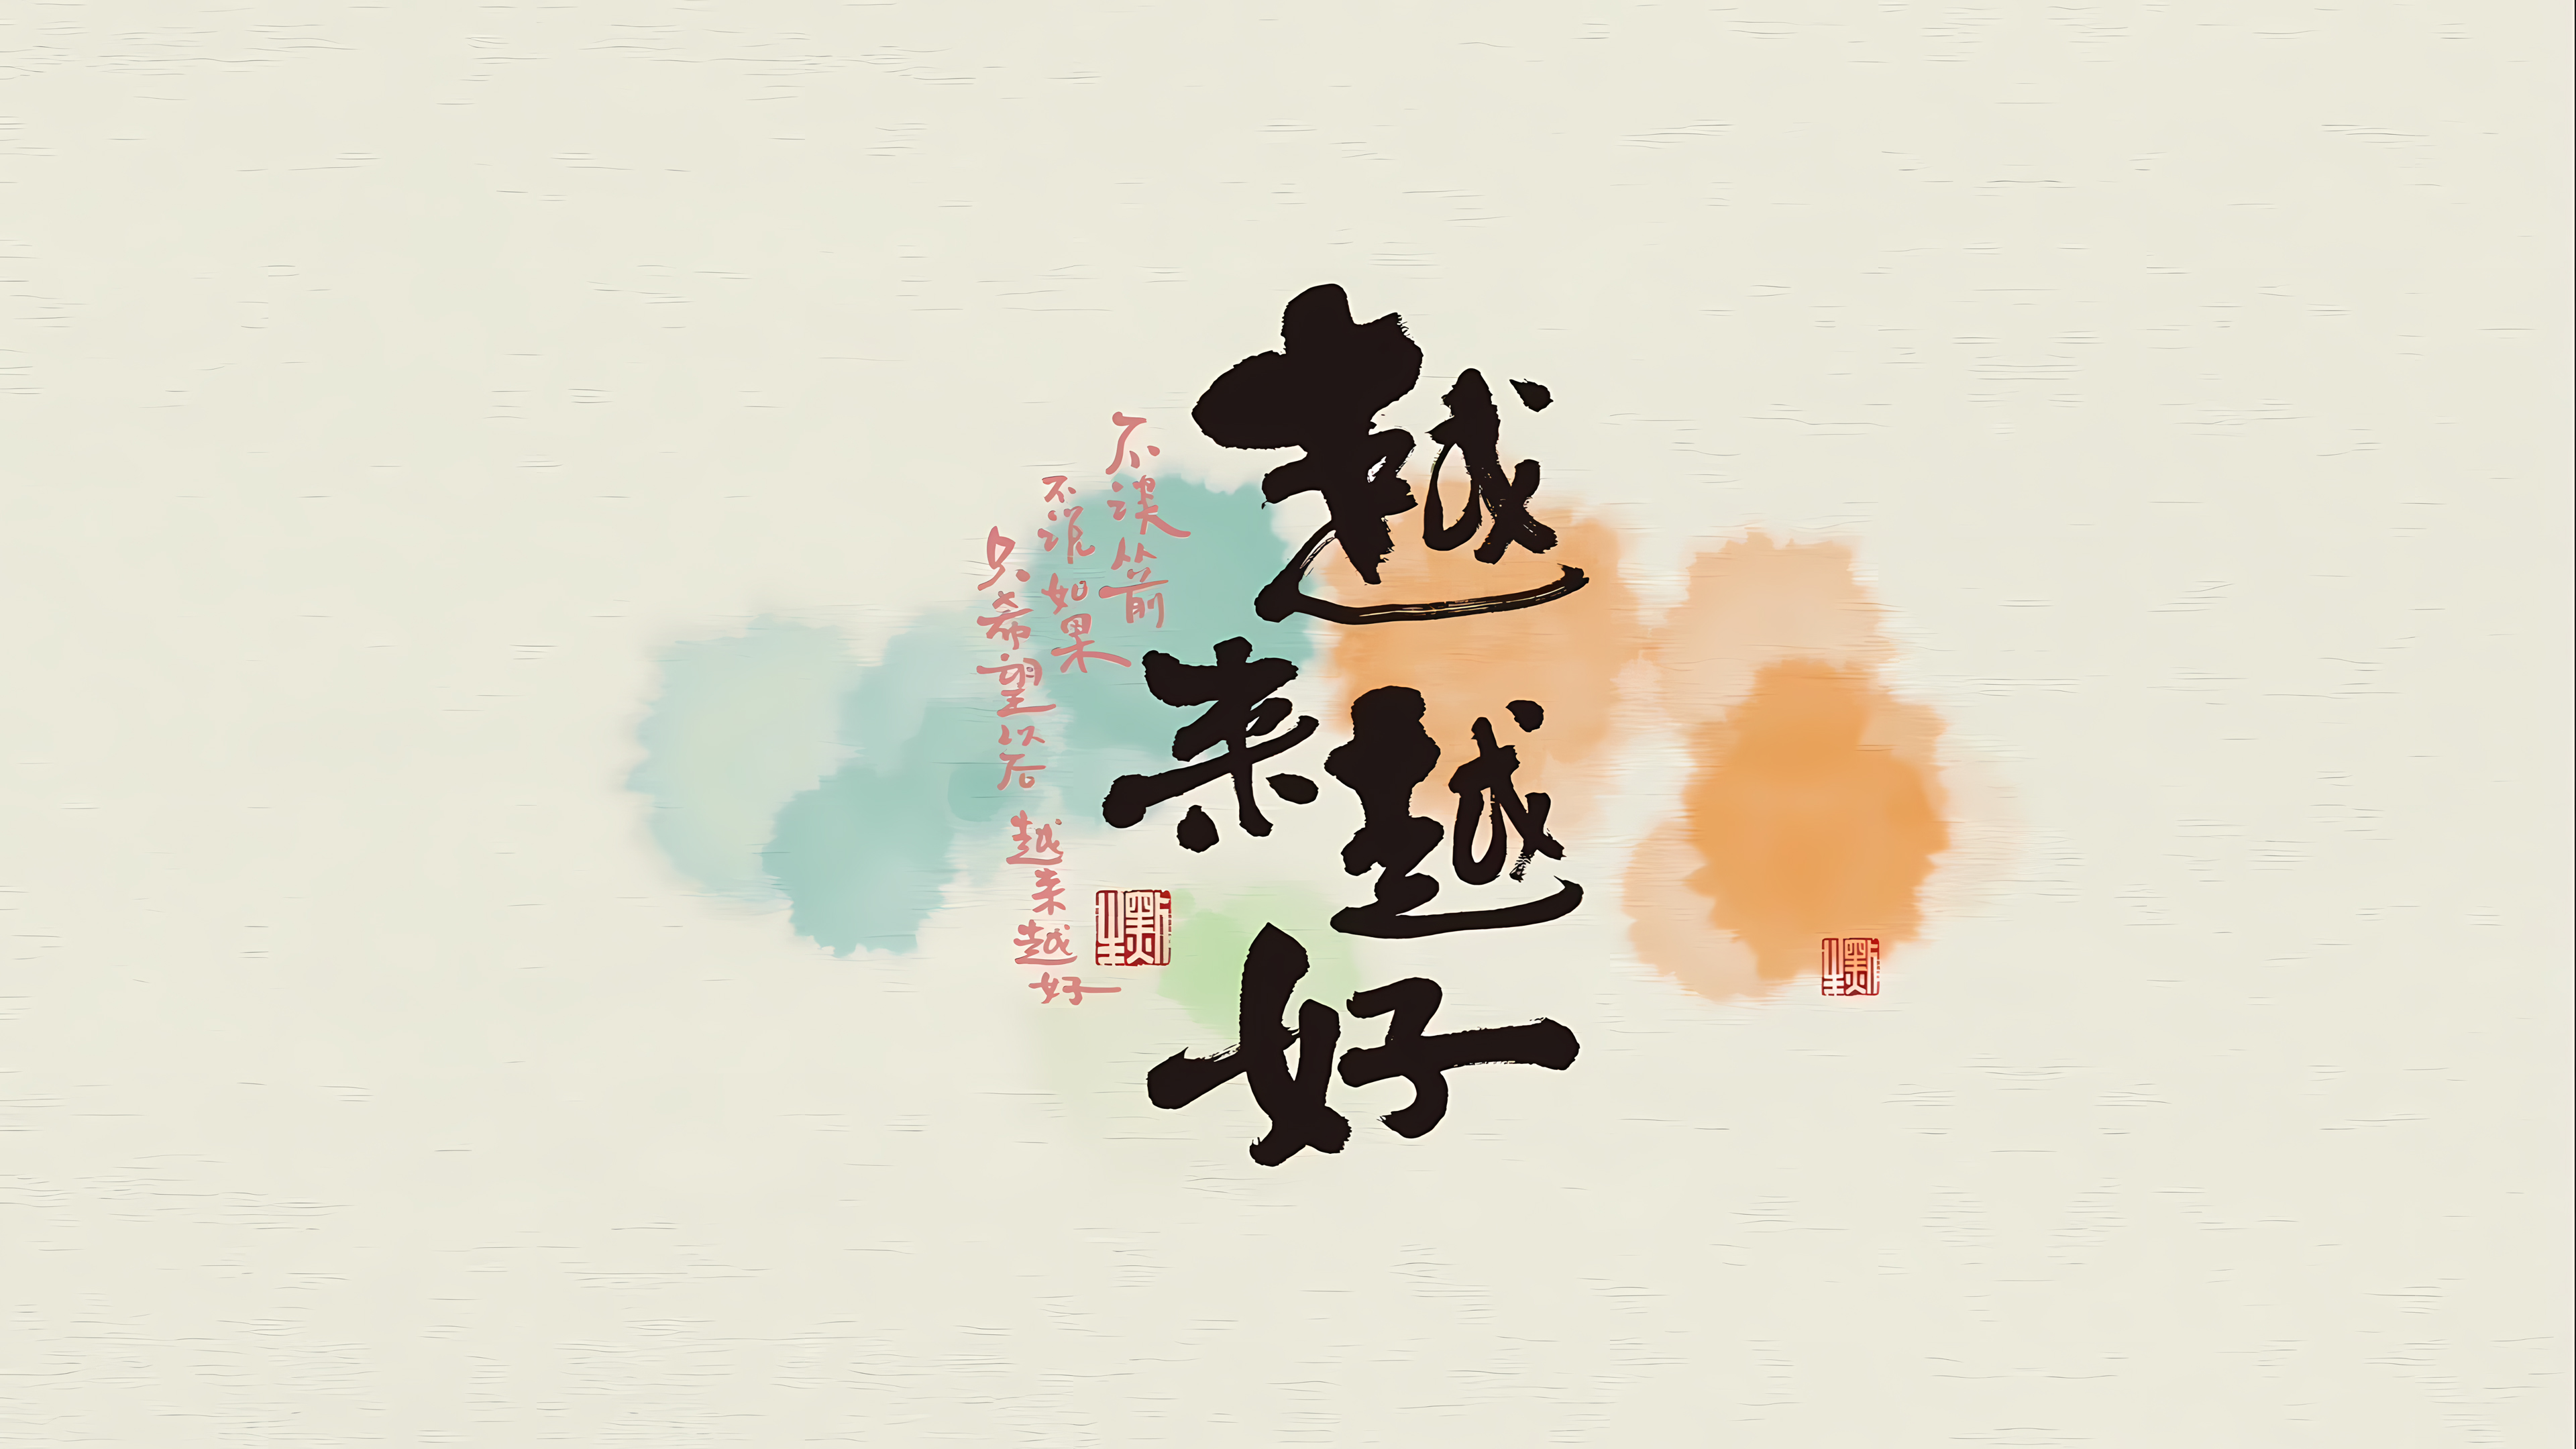 越来越好
不谈从前
不说如果
只希望以后 越来越好